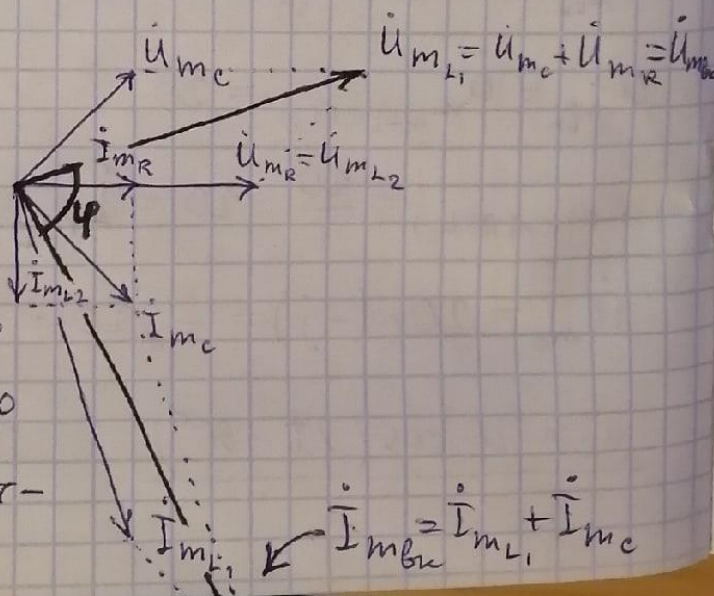 U̇mC
U̇mL1 = U̇mC + U̇mR = U̇mвх
İmR
U̇mR = U̇mL2
φ
İmL2
İmC
о
т-
İmL1
İmвх = İmL1 + İmC